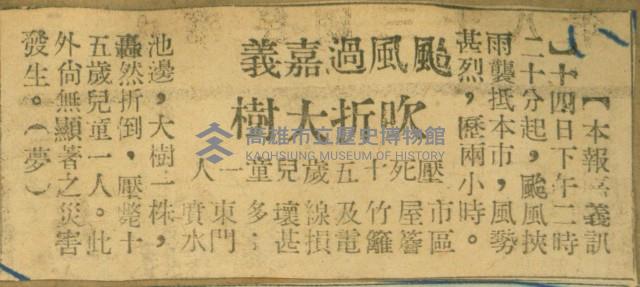 颱風過嘉義
吹折大樹
壓死十五歲兒童一人
【本報嘉義訊
】十四日下午二時
二十分起，颱風挾
雨襲抵本市，風勢
甚烈，歷兩小時。
市區
屋簷
竹籬
及電
線損
壞甚
多；
東門
噴水
池邊，大樹一株，
轟然折倒，壓斃十
五歲兒童一人。此
外尙無顯著之災害
發生。（夢）
高雄市立歷史博物館
KAOHSIUNG MUSEUM OF HISTORY